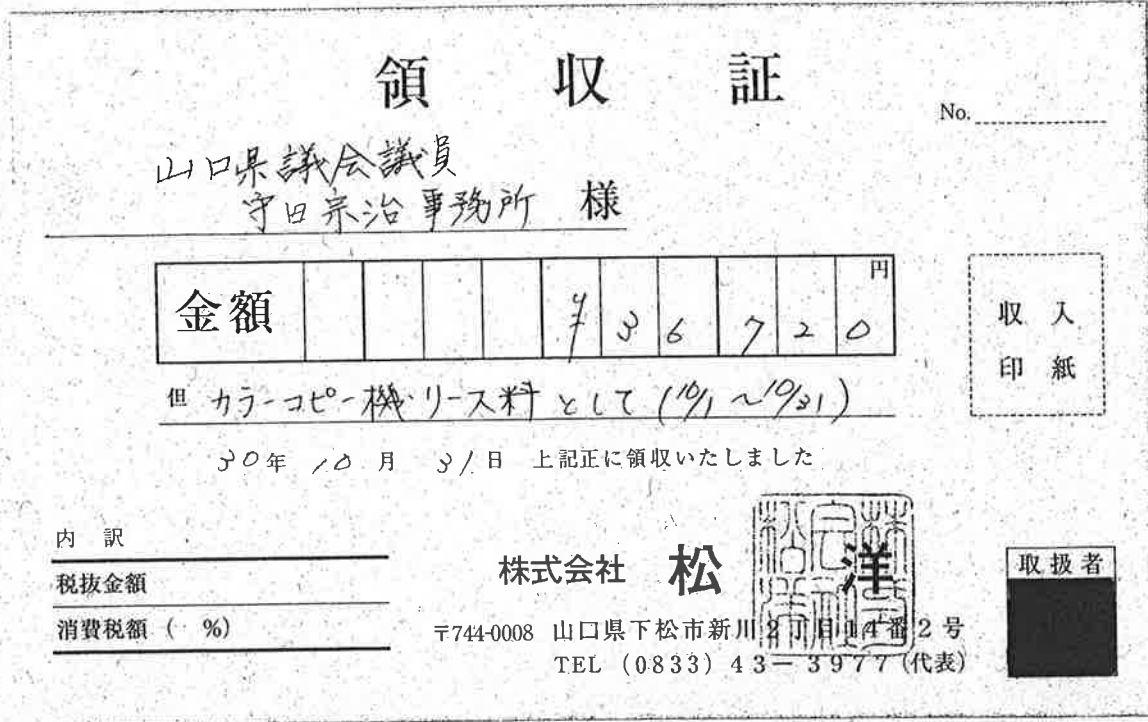 領収証
No.
山口県議会議員
守田宗治事務所 様
金額 ¥36720円
収入
印紙
但 カラーコピー機リース料として(10/1~10/31)
30年10月31日 上記正に領収いたしました
内訳
税抜金額
消費税額( %)
株式会社 松洋
〒744-0008 山口県下松市新川2丁目14番2号
TEL(0833)43-3977(代表)
取扱者